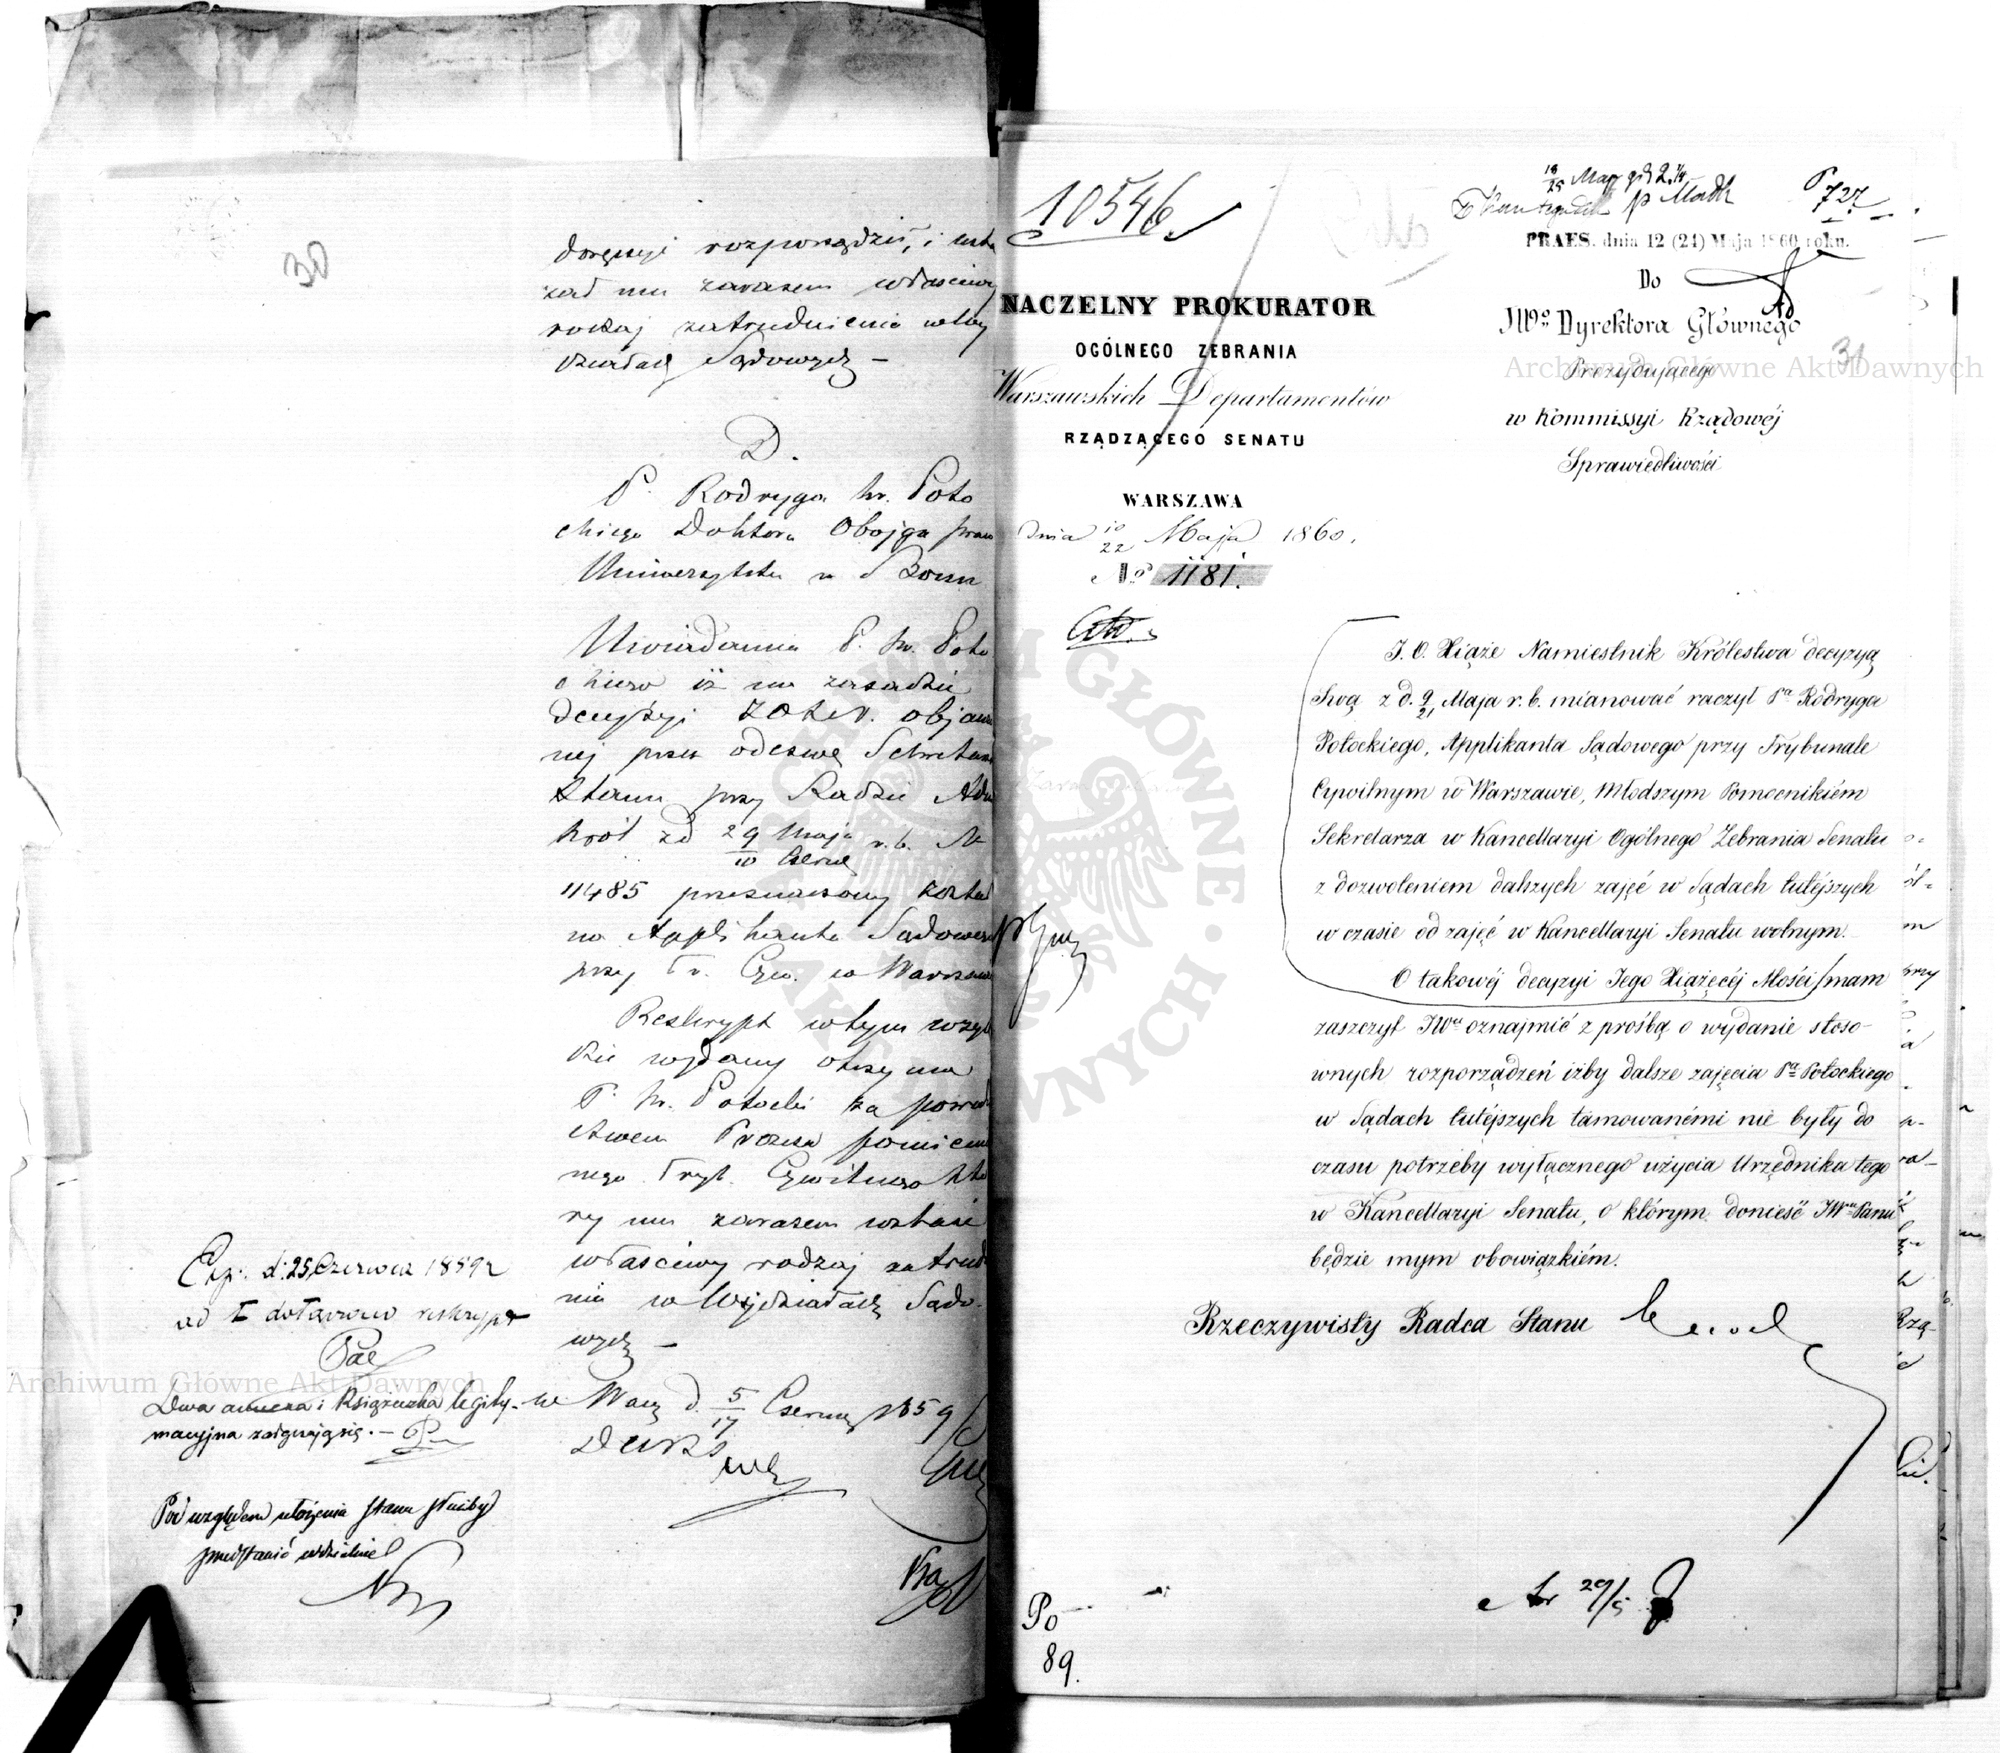 30
rozporządzić, i wska
zał mu zarazem właściwy
rodzaj zatrudnienia w Wy
działach Sądowych –
D.
P. Rodryga hr. Poto
ckiego Doktora Obojga praw
Uniwersytetu w Bonn
Uwiadamia P. hr. Poto
ckiego iż na zasadzie
decyzyi objawio
nej przez odezwę Sekretarza
Stanu przy Radzie Adm
Król z d 29 Maja r. b. N
10 Czerw
11485 przeznaczony został
na Applikanta Sądowego
przy Tr. Cyw. w Warszawie
Reskrypt w tym wzglę
dzie wydany otrzyma
P. hr. Potocki za pośredni
ctwem Prezesa pomienio
nego Tryb. Cywilnego któ
ry mu zarazem wskaże
właściwy rodzaj zatrud
nia w Wydziałach Sądo-
wych –
w Warsz d. 5/17 Czerwca 1859
Exp. d. 25 Czerwca 1859 r
ad t dołączono reskrypt
Dwa i Książeczka legity-
macyjna załączają się. –
Pod względem ułożenia stanu służby
przedstawić oddzielnie
10546
727
PRAES. dnia 12 (24) Maja 1860 roku.
NACZELNY PROKURATOR
OGÓLNEGO ZEBRANIA
Warszawskich Departamentów
RZĄDZĄCEGO SENATU
WARSZAWA
dnia 10/22 Maja 1860.
№ 1181.
Do
JWo Dyrektora Głównego
Prezydującego
w Kommissyi Rządowéj
Sprawiedliwości
31
J. O. Xiąże Namiestnik Królestwa decyzyą
Swą z d. 9/21 Maja r. b. mianować raczył Pa Rodryga
Potockiego, Applikanta Sądowego przy Trybunale
Cywilnym w Warszawie, Młodszym Pomocnikiém
Sekretarza w Kancellaryi Ogólnego Zebrania Senatu
z dozwoleniem dalszych zajęć w Sądach tutéjszych
w czasie od zajęć w Kancellaryi Senatu wolnym.
O takowéj decyzyi Jego Xiążęcéj Mości mam
zaszczyt JWu oznajmić z prośbą o wydanie stoso-
wnych rozporządzeń iżby dalsze zajęcia Pa Potockiego
w Sądach tutéjszych tamowanémi nie były do
czasu potrzeby wyłącznego użycia Urzędnika tego
w Kancellaryi Senatu, o którym donieść JWu Panu
będzie mym obowiązkiém.
Rzeczywisty Radca Stanu
29/5
Po
89.
Archiwum Główne Akt Dawnych
Archiwum Główne Akt Dawnych
ARCHIWUM GŁÓWNE AKT DAWNYCH